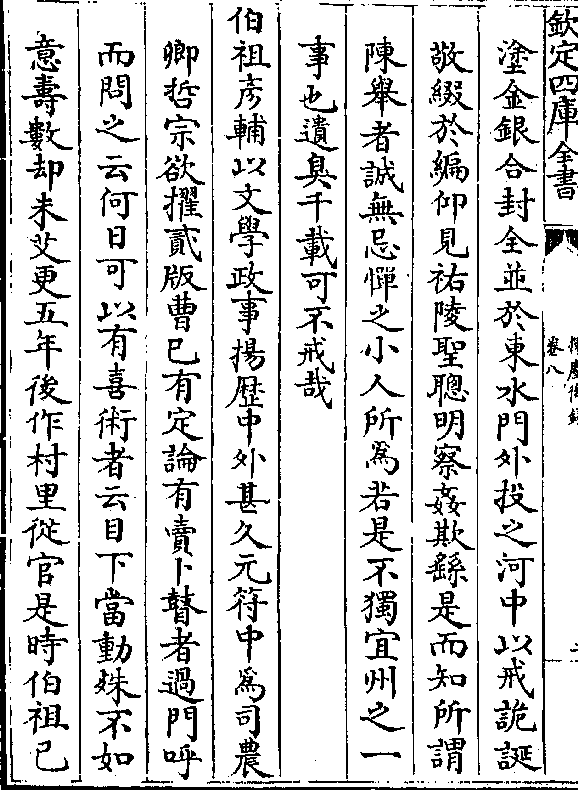 欽定四庫全書
卷八
塗金銀合封全並於東水門外投之河中以戒詭誕
敬綴於編仰見祐陵聖聰明察姦欺繇是而知所謂
陳舉者誠無忌憚之小人所為若是不獨宜州之一
事也遺臭千載可不戒哉
伯祖彥輔以文學政事揚歴中外甚久元符中為司農
卿哲宗欲擢貳版曹已有定論有賣卜瞽者過門呼
而問之云何日可以有喜術者云目下當動姝不如
意壽數却未艾更五年後作村里從官是時伯祖已